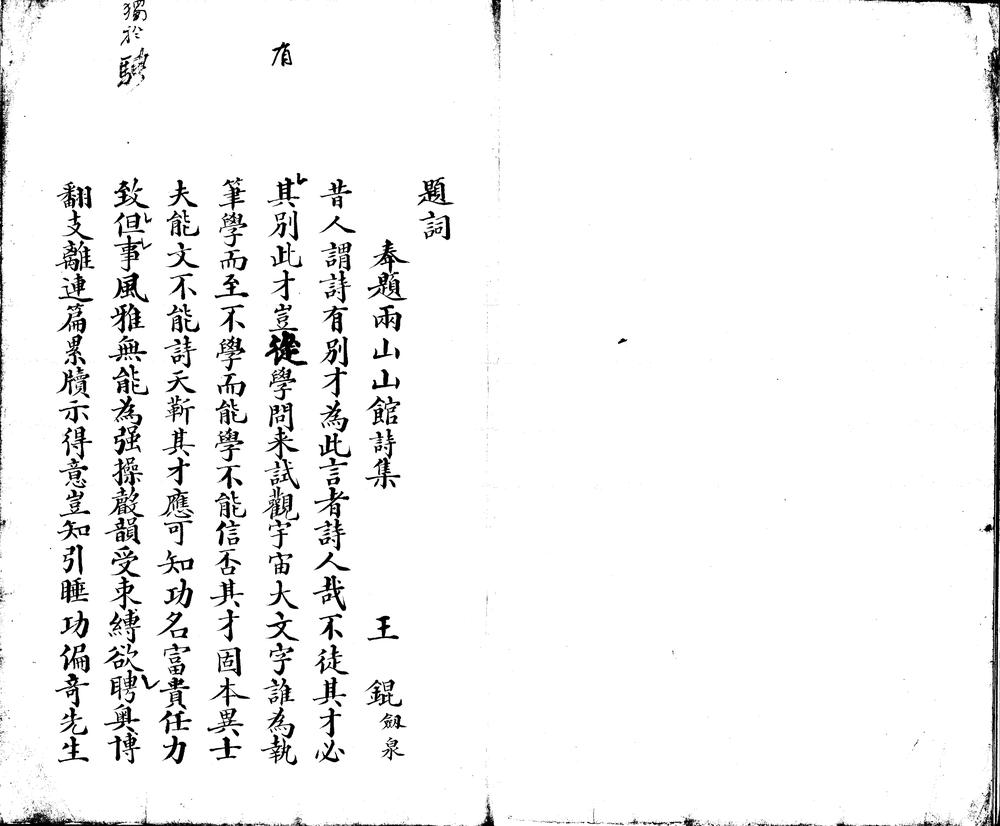 題詞
奉題兩山山館詩集 王 錕 劔泉
昔人謂詩有別才為此言者詩人哉不徒其才必
有
其別此才豈從學問来試觀宇宙大文字誰為執
筆學而至不學而能學不能信否其才固本異士
夫能文不能詩天靳其才應可知功名富貴任力
獨於騁
致但事風雅無能為强操嗀韻受束縛欲聘奥博
翻支離連篇累牘示得意豈知引睡功偏竒先生